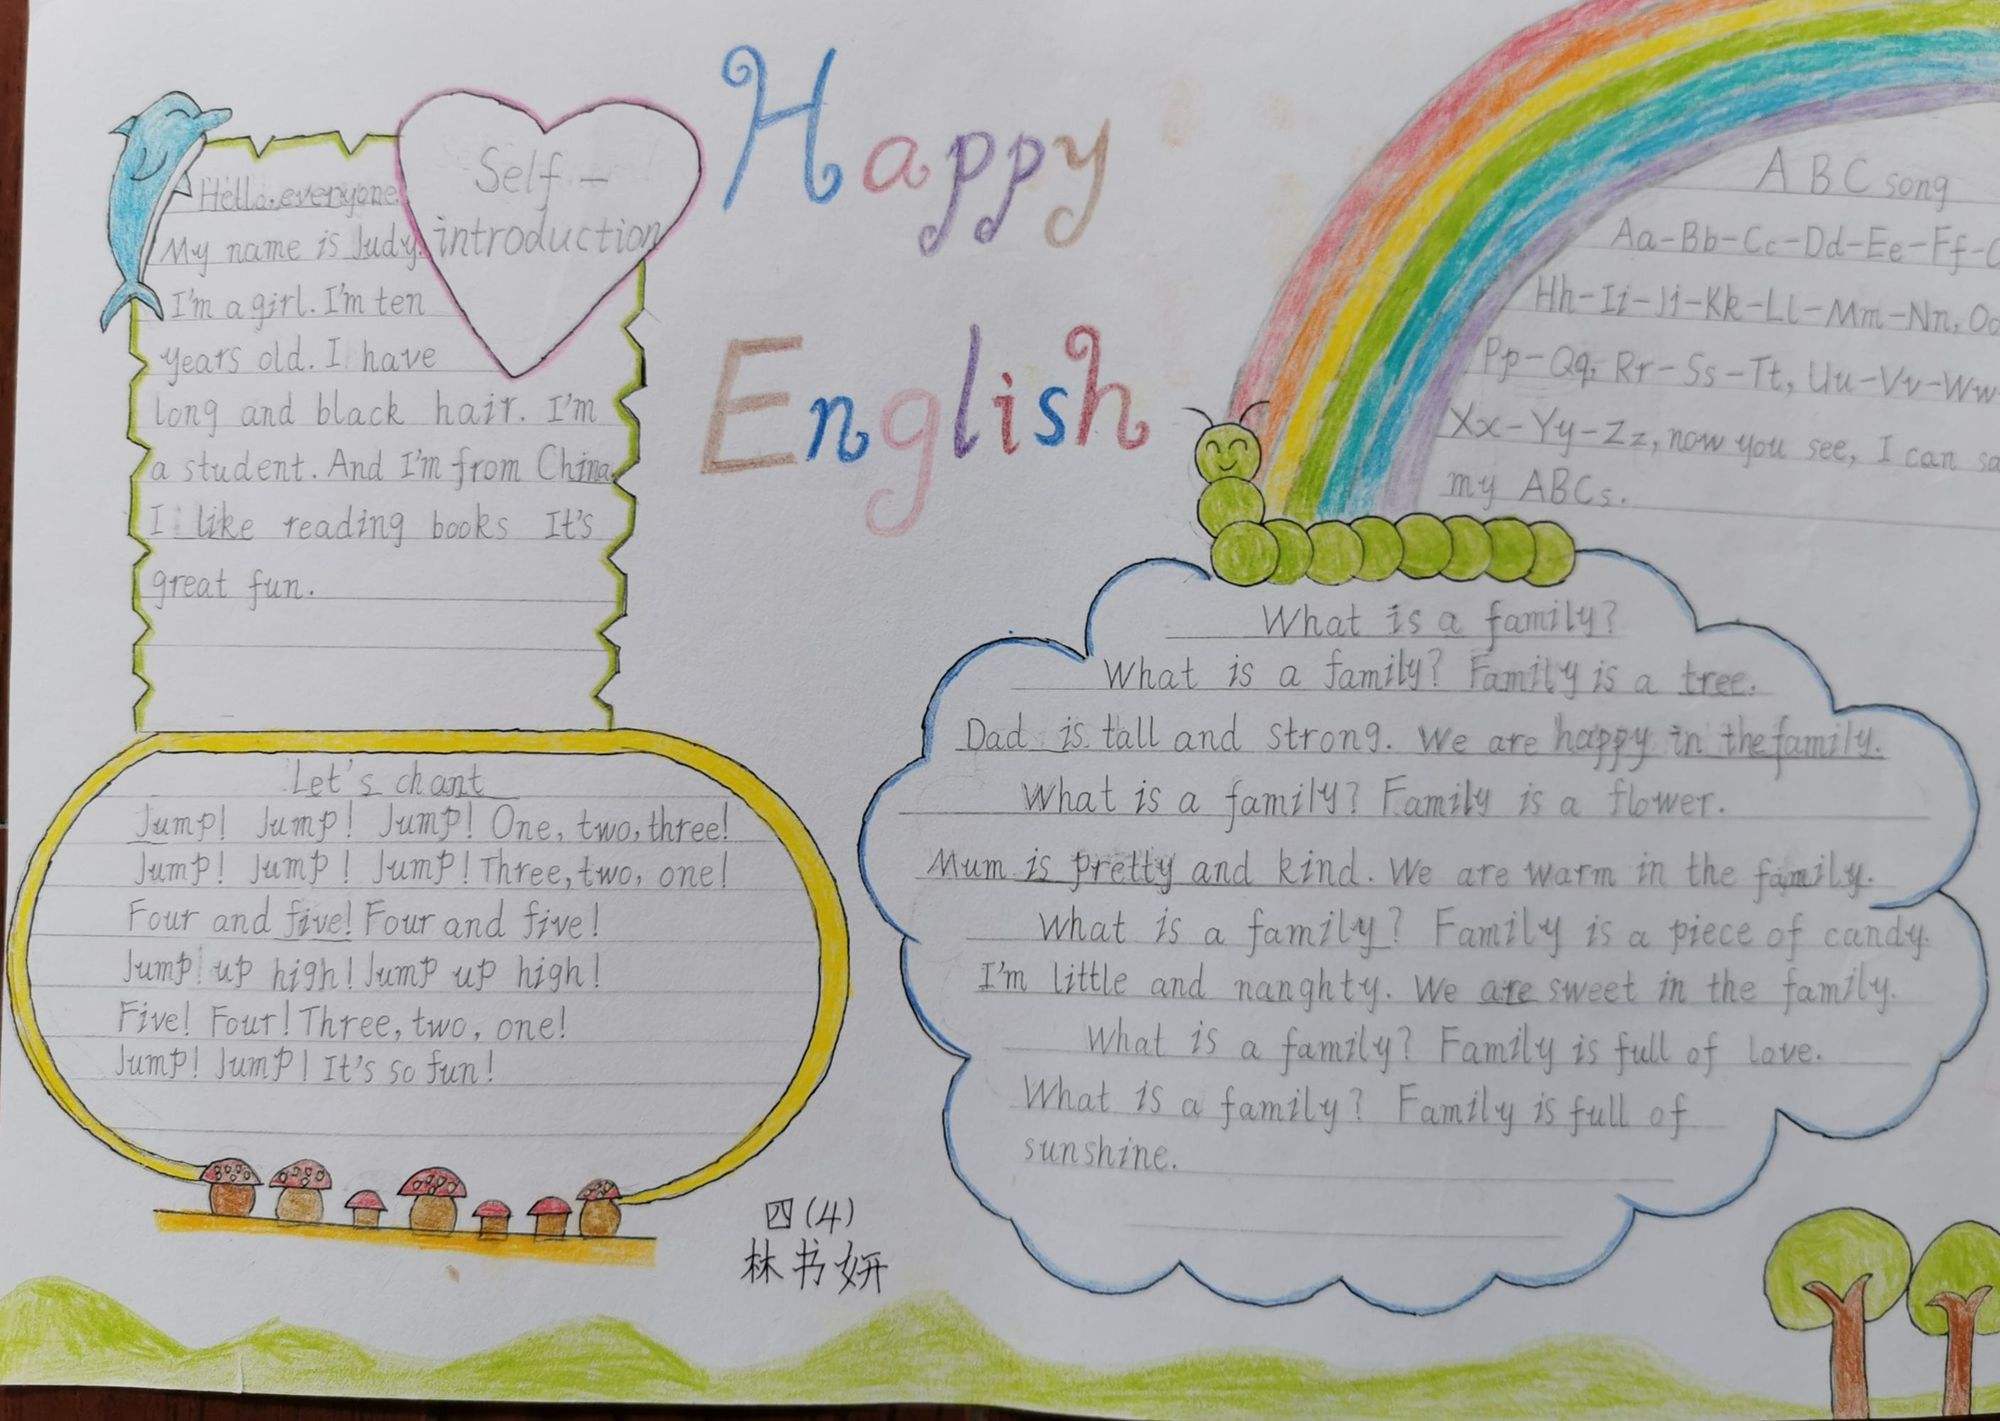 Happy
English
Self-
introduction
Hello, everyone
My name is Judy.
I'm a girl. I'm ten
years old. I have
long and black hair. I'm
a student. And I'm from China
I like reading books It's
great fun.
Let's chant
Jump! Jump! Jump! One, two, three!
Jump! Jump! Jump! Three, two, one!
Four and five! Four and five!
Jump up high! Jump up high!
Five! Four! Three, two, one!
Jump! Jump! It's so fun!
四(4)
林书妍
ABC song
Aa-Bb-Cc-Dd-Ee-Ff-
Hh-Ii-Jj-Kk-Ll-Mm-Nn,
Pp-Qq, Rr-Ss-Tt, Uu-Vv-Ww
Xx-Yy-Zz, now you see, I can
my ABCs.
What is a family?
What is a family? Family is a tree.
Dad is tall and strong. We are happy in the family.
What is a family? Family is a flower.
Mum is pretty and kind. We are warm in the family.
What is a family? Family is a piece of candy.
I'm little and nanghty. We are sweet in the family.
What is a family? Family is full of love.
What is a family? Family is full of
sunshine.